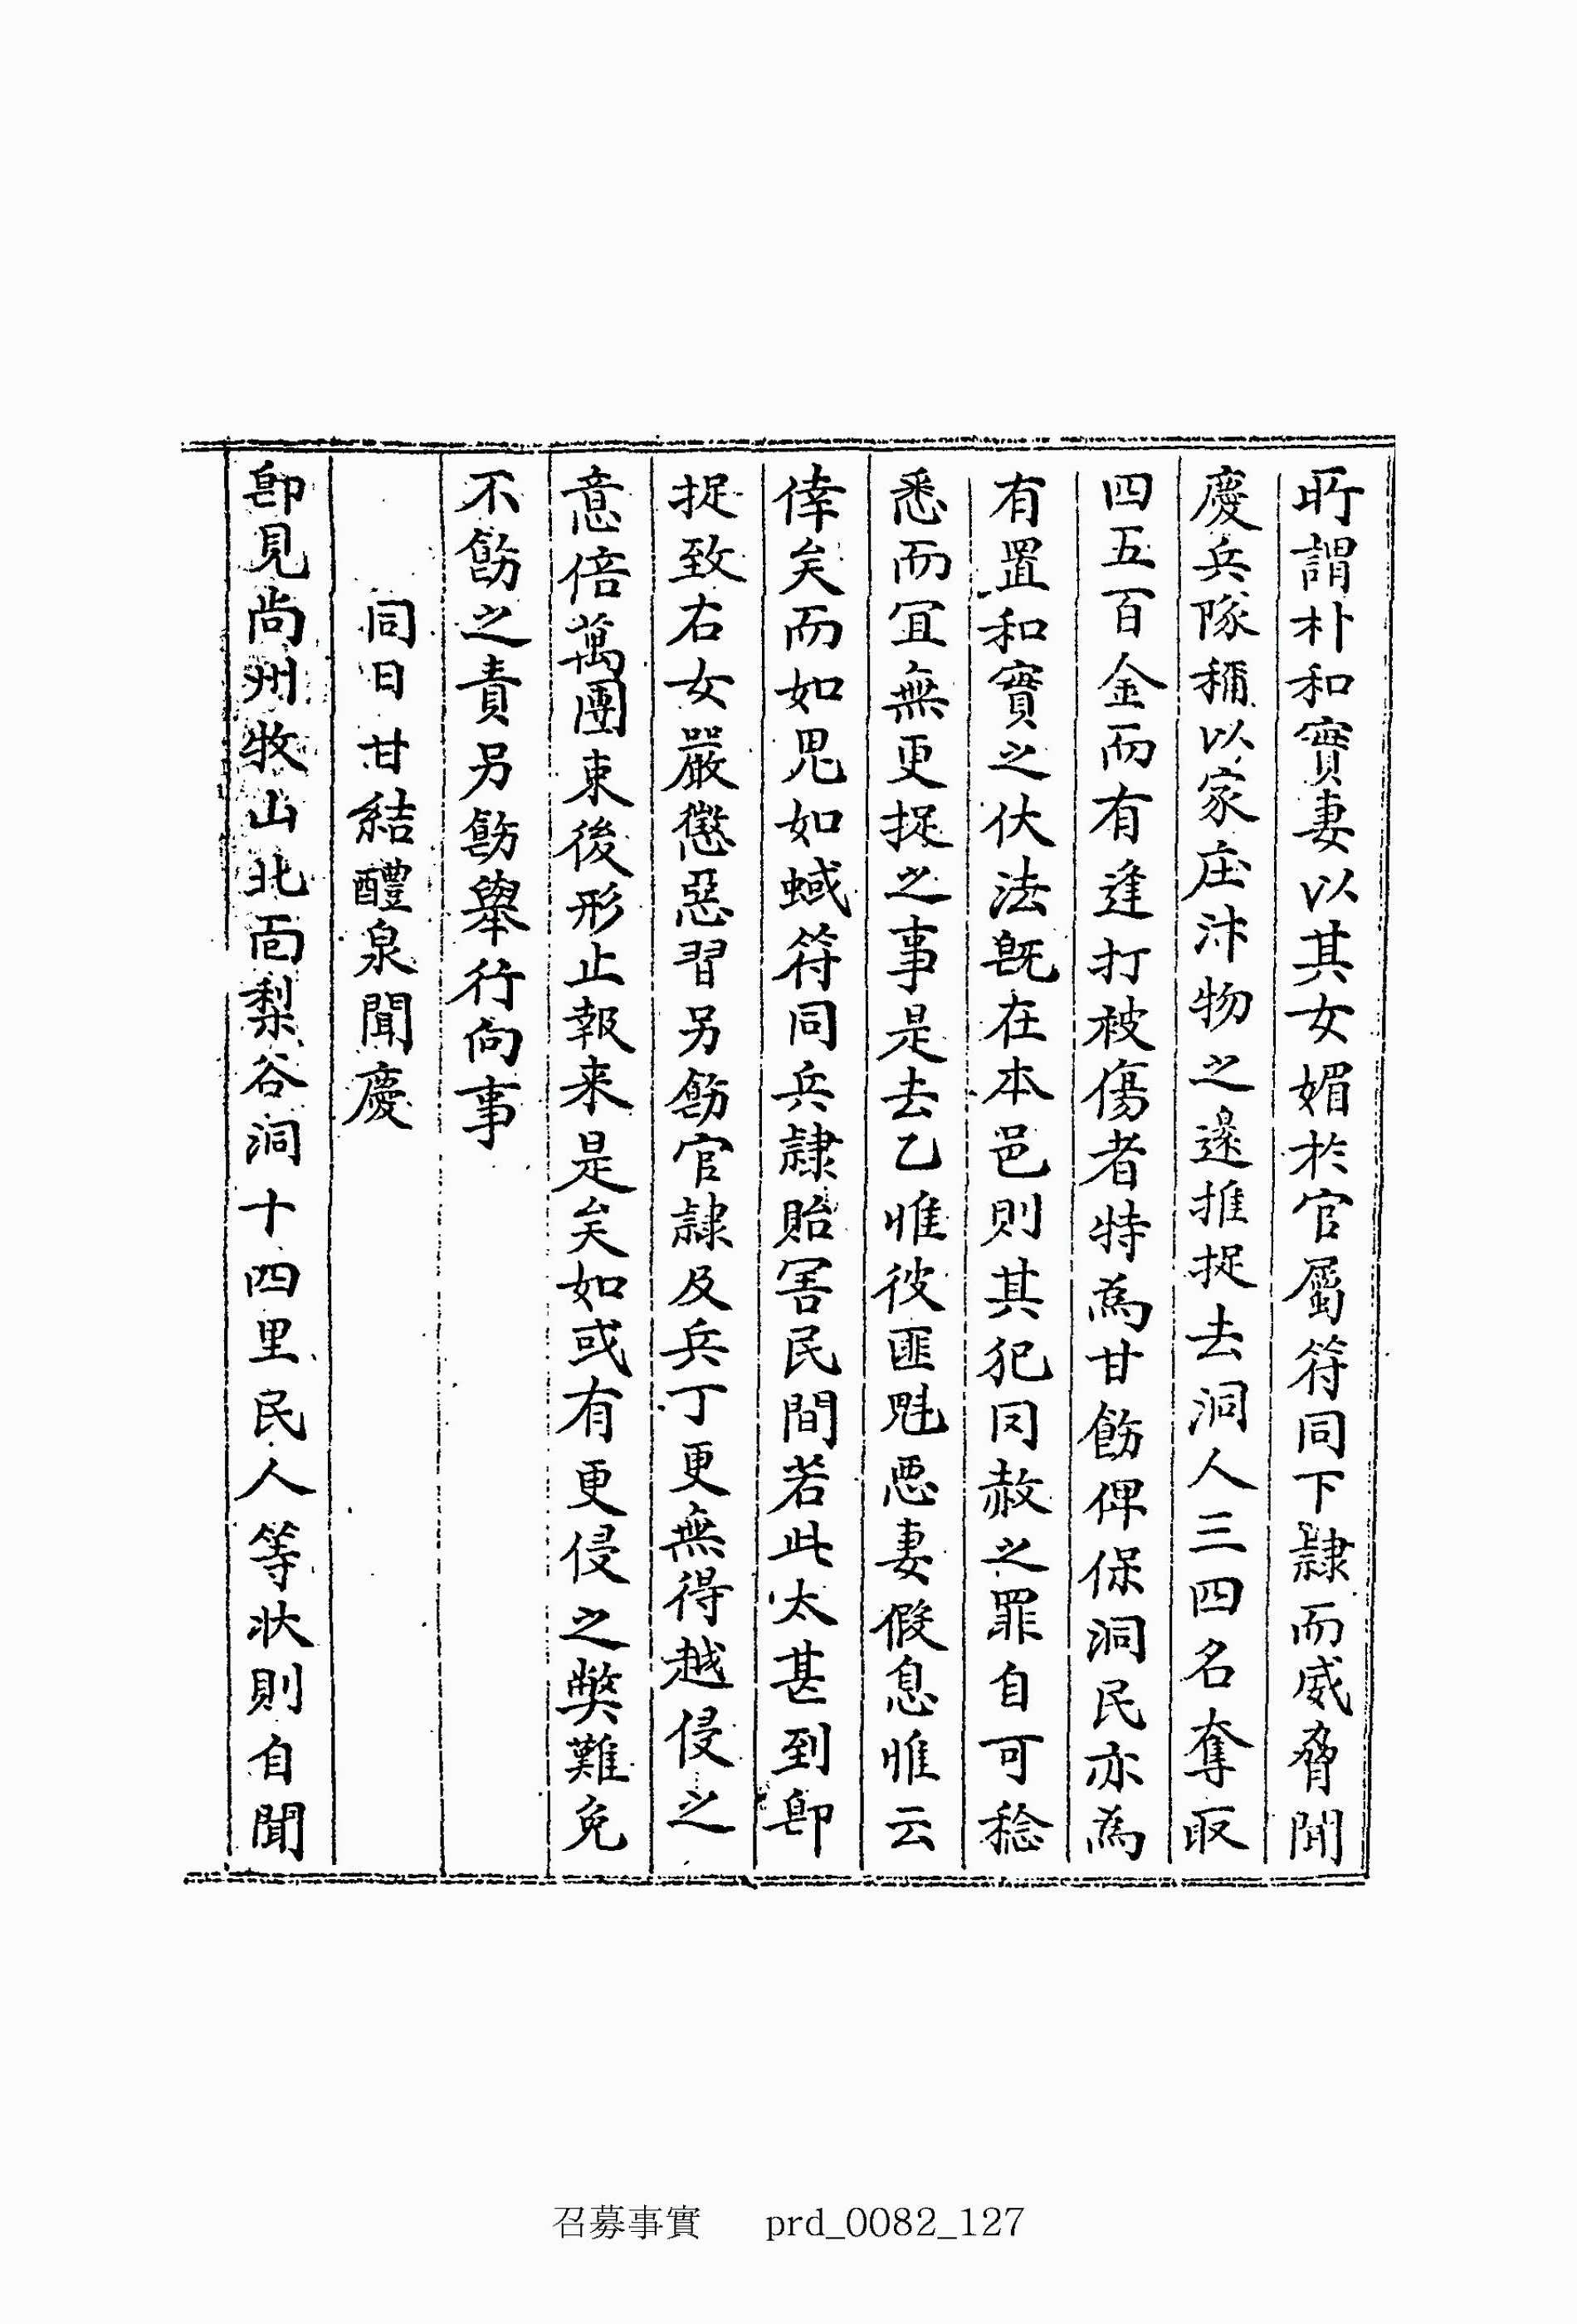 所謂朴和實妻以其女媚於官屬符同下隷而威脅聞
慶兵隊稱以家庄汴物之邊推捉去洞人三四名奪取
四五百金而有逢打被傷者特爲甘飭俾保洞民亦爲
有置和實之伏法旣在本邑則其犯罔赦之罪自可稔
悉而冝無更捉之事是去乙惟彼匪魁惡妻假息惟云
倖矣而如鬼如蜮符同兵隷貽害民間若此太甚到卽
捉致右女嚴懲惡習另飭官隷及兵丁更無得越侵之
意倍萬團束後形止報来是矣如或有更侵之獘難免
不飭之責另飭擧行向事
同日甘結醴泉聞慶
卽見尙州牧山北面梨谷洞十四里民人等狀則自聞
召募事實 prd_0082_127